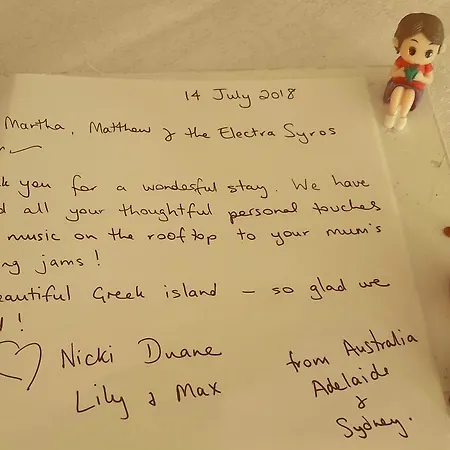 14 July 2018
Martha, Matthew & the Electra Syros
you for a wonderful stay. We have
all your thoughtful personal touches
music on the rooftop to your mum's
jams!
Greek island - so glad we
!
Nicki Duane
Lily & Max
from Australia
Adelaide
&
Sydney.